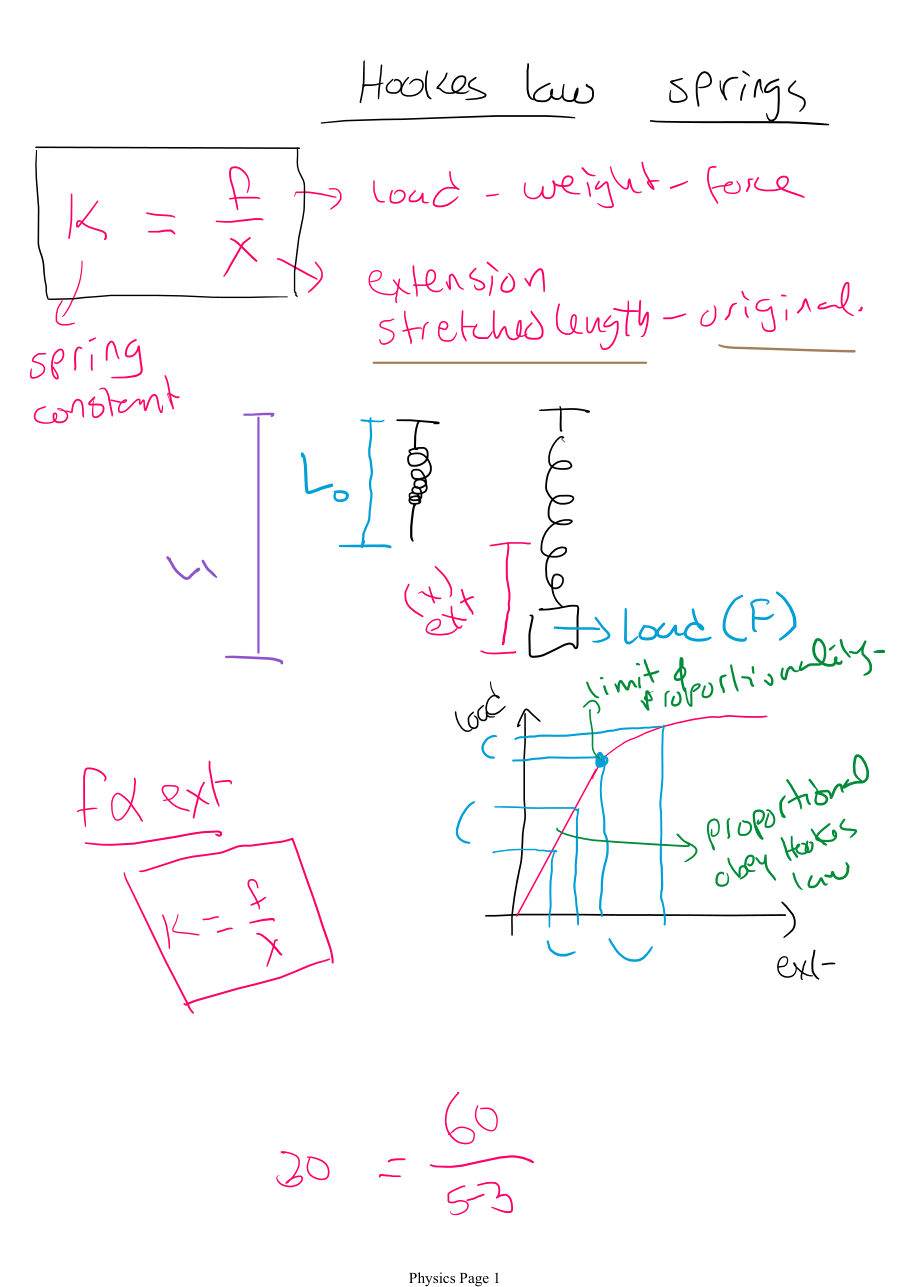 Hookes law springs
K = f/x → load - weight - force
extension
stretched length - original.
spring
constant
L₀
(x)
ext
Load (F)
limit of
proportionality
load
f α ext
K = f/x
proportional
obey Hookes
law
ext
30 = 60/5-3
Physics Page 1